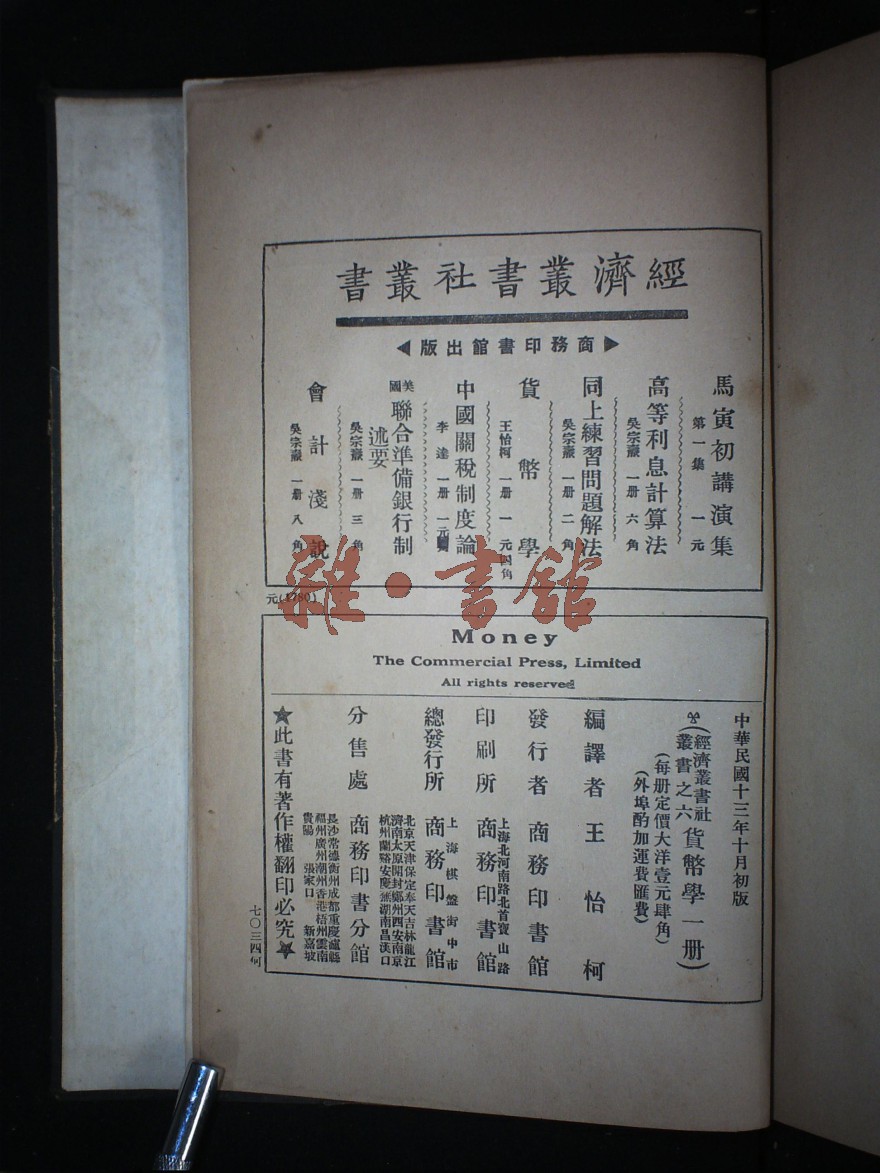 經濟叢書社叢書
商務印書館出版
馬寅初講演集
第一集 一元
高等利息計算法
吳宗燾 一册 六角
同上練習問題解法
吳宗燾 一册 二角
貨幣學
王怡柯 一册 一元四角
中國關稅制度論
李達 一册 一元
美國聯合準備銀行制述要
吳宗燾 一册 三角
會計淺說
吳宗燾 一册 八角
元(1780)
雜·書館
Money
The Commercial Press, Limited
All rights reserved
中華民國十三年十月初版
(經濟叢書社叢書之六貨幣學一册)
(每册定價大洋壹元肆角)
(外埠酌加運費匯費)
編譯者 王怡柯
發行者 商務印書館
上海北河南路北首寶山路
印刷所 商務印書館
上海棋盤街中市
總發行所 商務印書館
北京天津保定奉天吉林龍江
濟南太原開封鄭州西安南京
杭州蘭谿安慶蕪湖南昌漢口
分售處 商務印書分館
長沙常德衡州成都重慶瀘縣
福州廣州潮州香港梧州雲南
貴陽 張家口 新嘉坡
★此書有著作權翻印必究★
七〇三四何